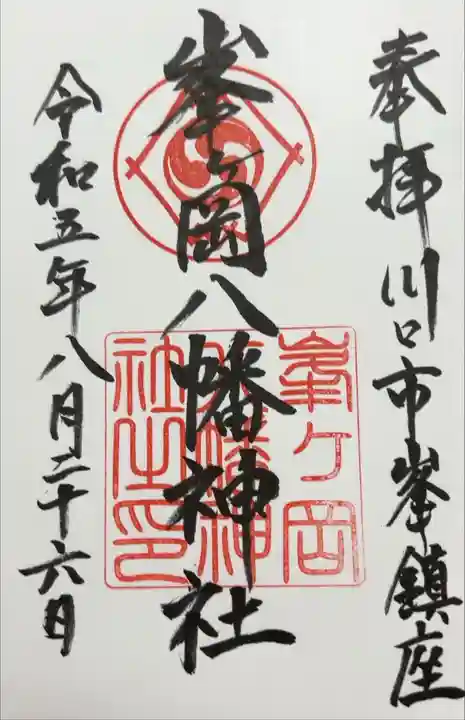 奉拝 川口市峯鎮座
峯ヶ岡八幡神社
令和五年八月二十六日
峯ヶ岡
八幡神
社之印